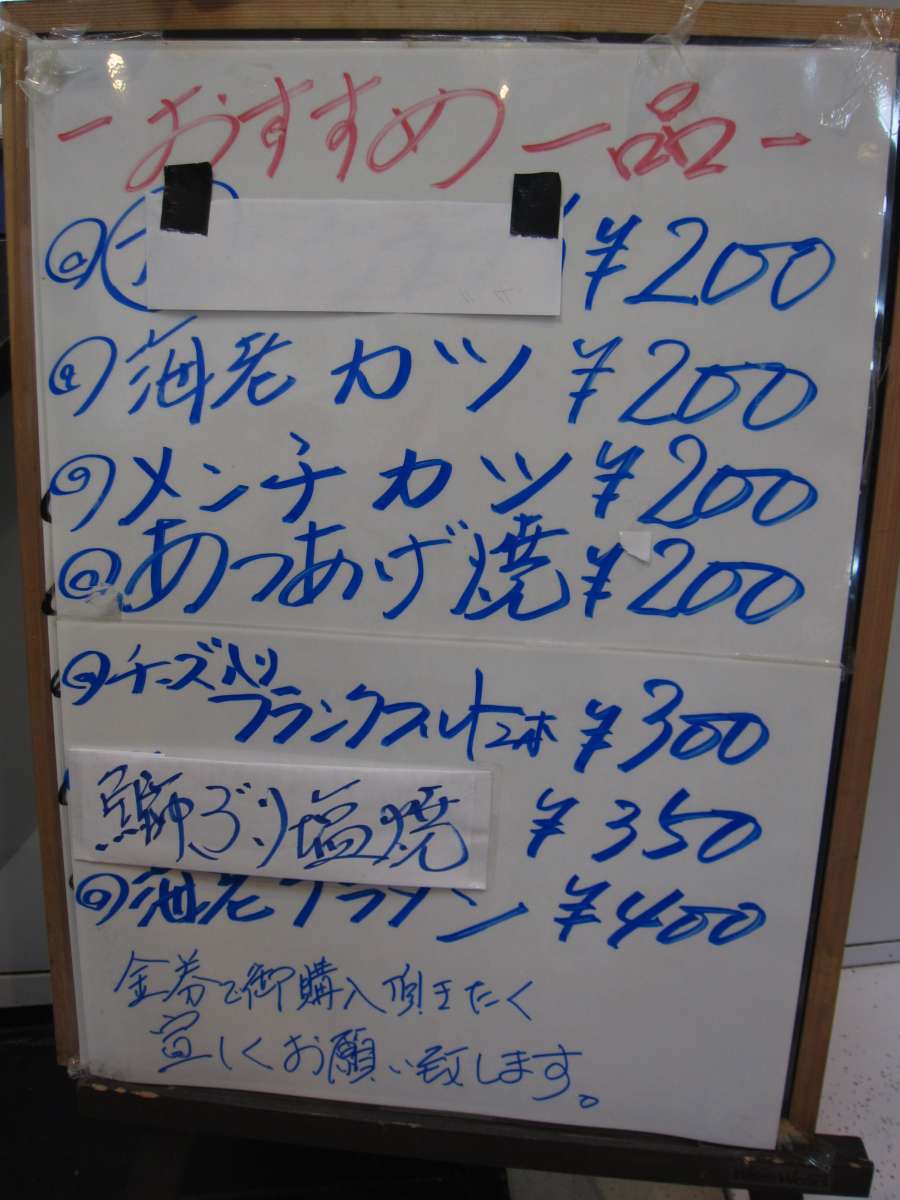 -おすすめ一品-
¥200
海老カツ ¥200
メンチカツ ¥200
あつあげ焼 ¥200
チーズ入り
フランクフルト2本 ¥300
鰤ぶり塩焼 ¥350
海老グラタン ¥400
金券で御購入頂きたく
宜しくお願い致します。